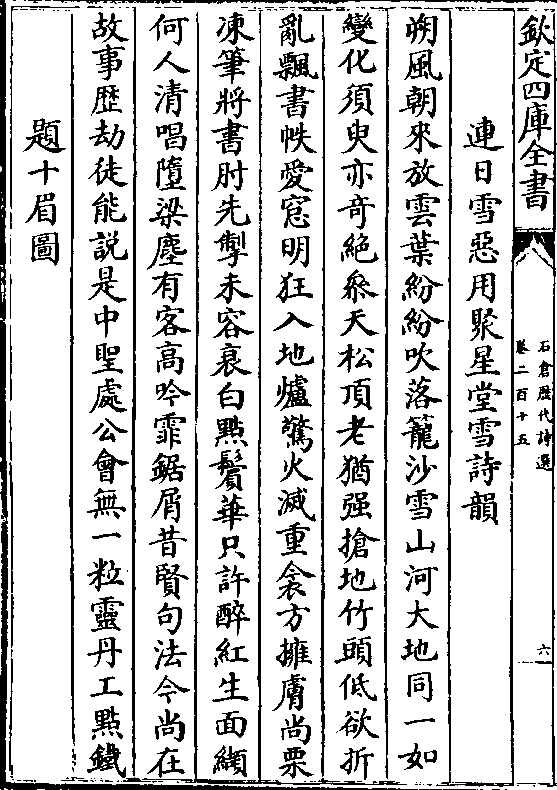 欽定四庫全書
石倉歴代詩選
卷二百十五
六
連日雪惡用聚星堂雪詩韻
朔風朝來放雲葉紛紛吹落籠沙雪山河大地同一如
變化須臾亦奇絶叅天松頂老猶强搶地竹頭低欲折
亂飄書帙愛窓明狂入地爐驚火滅重衾方擁膚尚栗
凍筆將書肘先掣未容衰白㸃鬢華只許醉紅生面纈
何人清唱墮梁塵有客高吟霏鋸屑昔賢句法今尚在
故事歴劫徒能説是中聖處公會無一粒靈丹工㸃鐵
題十眉圖